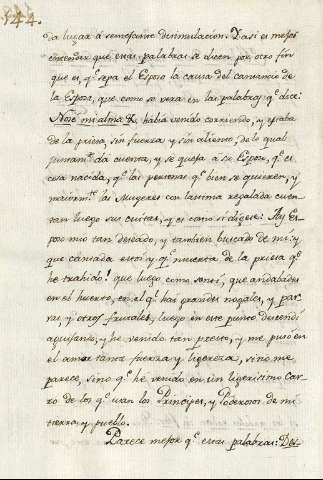 144.
da lugar à semejante disimulacion. Y asi es mejor
entender que estas palabras se dicen por otro fin
que es, qe. sepa el Esposo la causa del cansancio de
la Esposa, que como se vera en las palabras qe. dice:
Nosé mi alma & habia venido corriendo, y estaba
de la priesa, sin fuerza y sin aliento, de lo qual
juntamte. dà cuenta, y se queja a su Esposo, qe. es
cosa nacida, qe. las personas qe. bien se quieren, y
maiormte. las Mugeres con lastima regalada cuen-
tan luego sus cuitas, y es como si digese: Ay Es-
poso mio tan deseado, y tambien buscado de mi: y
que cansada estoi y qe. muerta de la priesa qe.
he trahido! que luego como sentí, que andabades
en el huerto, en el qe. hai grandes nogales, y par-
ras, y otros frutales, luego en este punto descendí
aguijando, y he venido tan presto, y me puso en
el amor tanta fuerza y ligereza, sino me
parece, sino qe. hé venido en un ligerisimo car-
ro de los qe. usan los Principes, y Poderosos de mi
tierra y pueblo.
Parece mejor qe. estas palabras: Des-